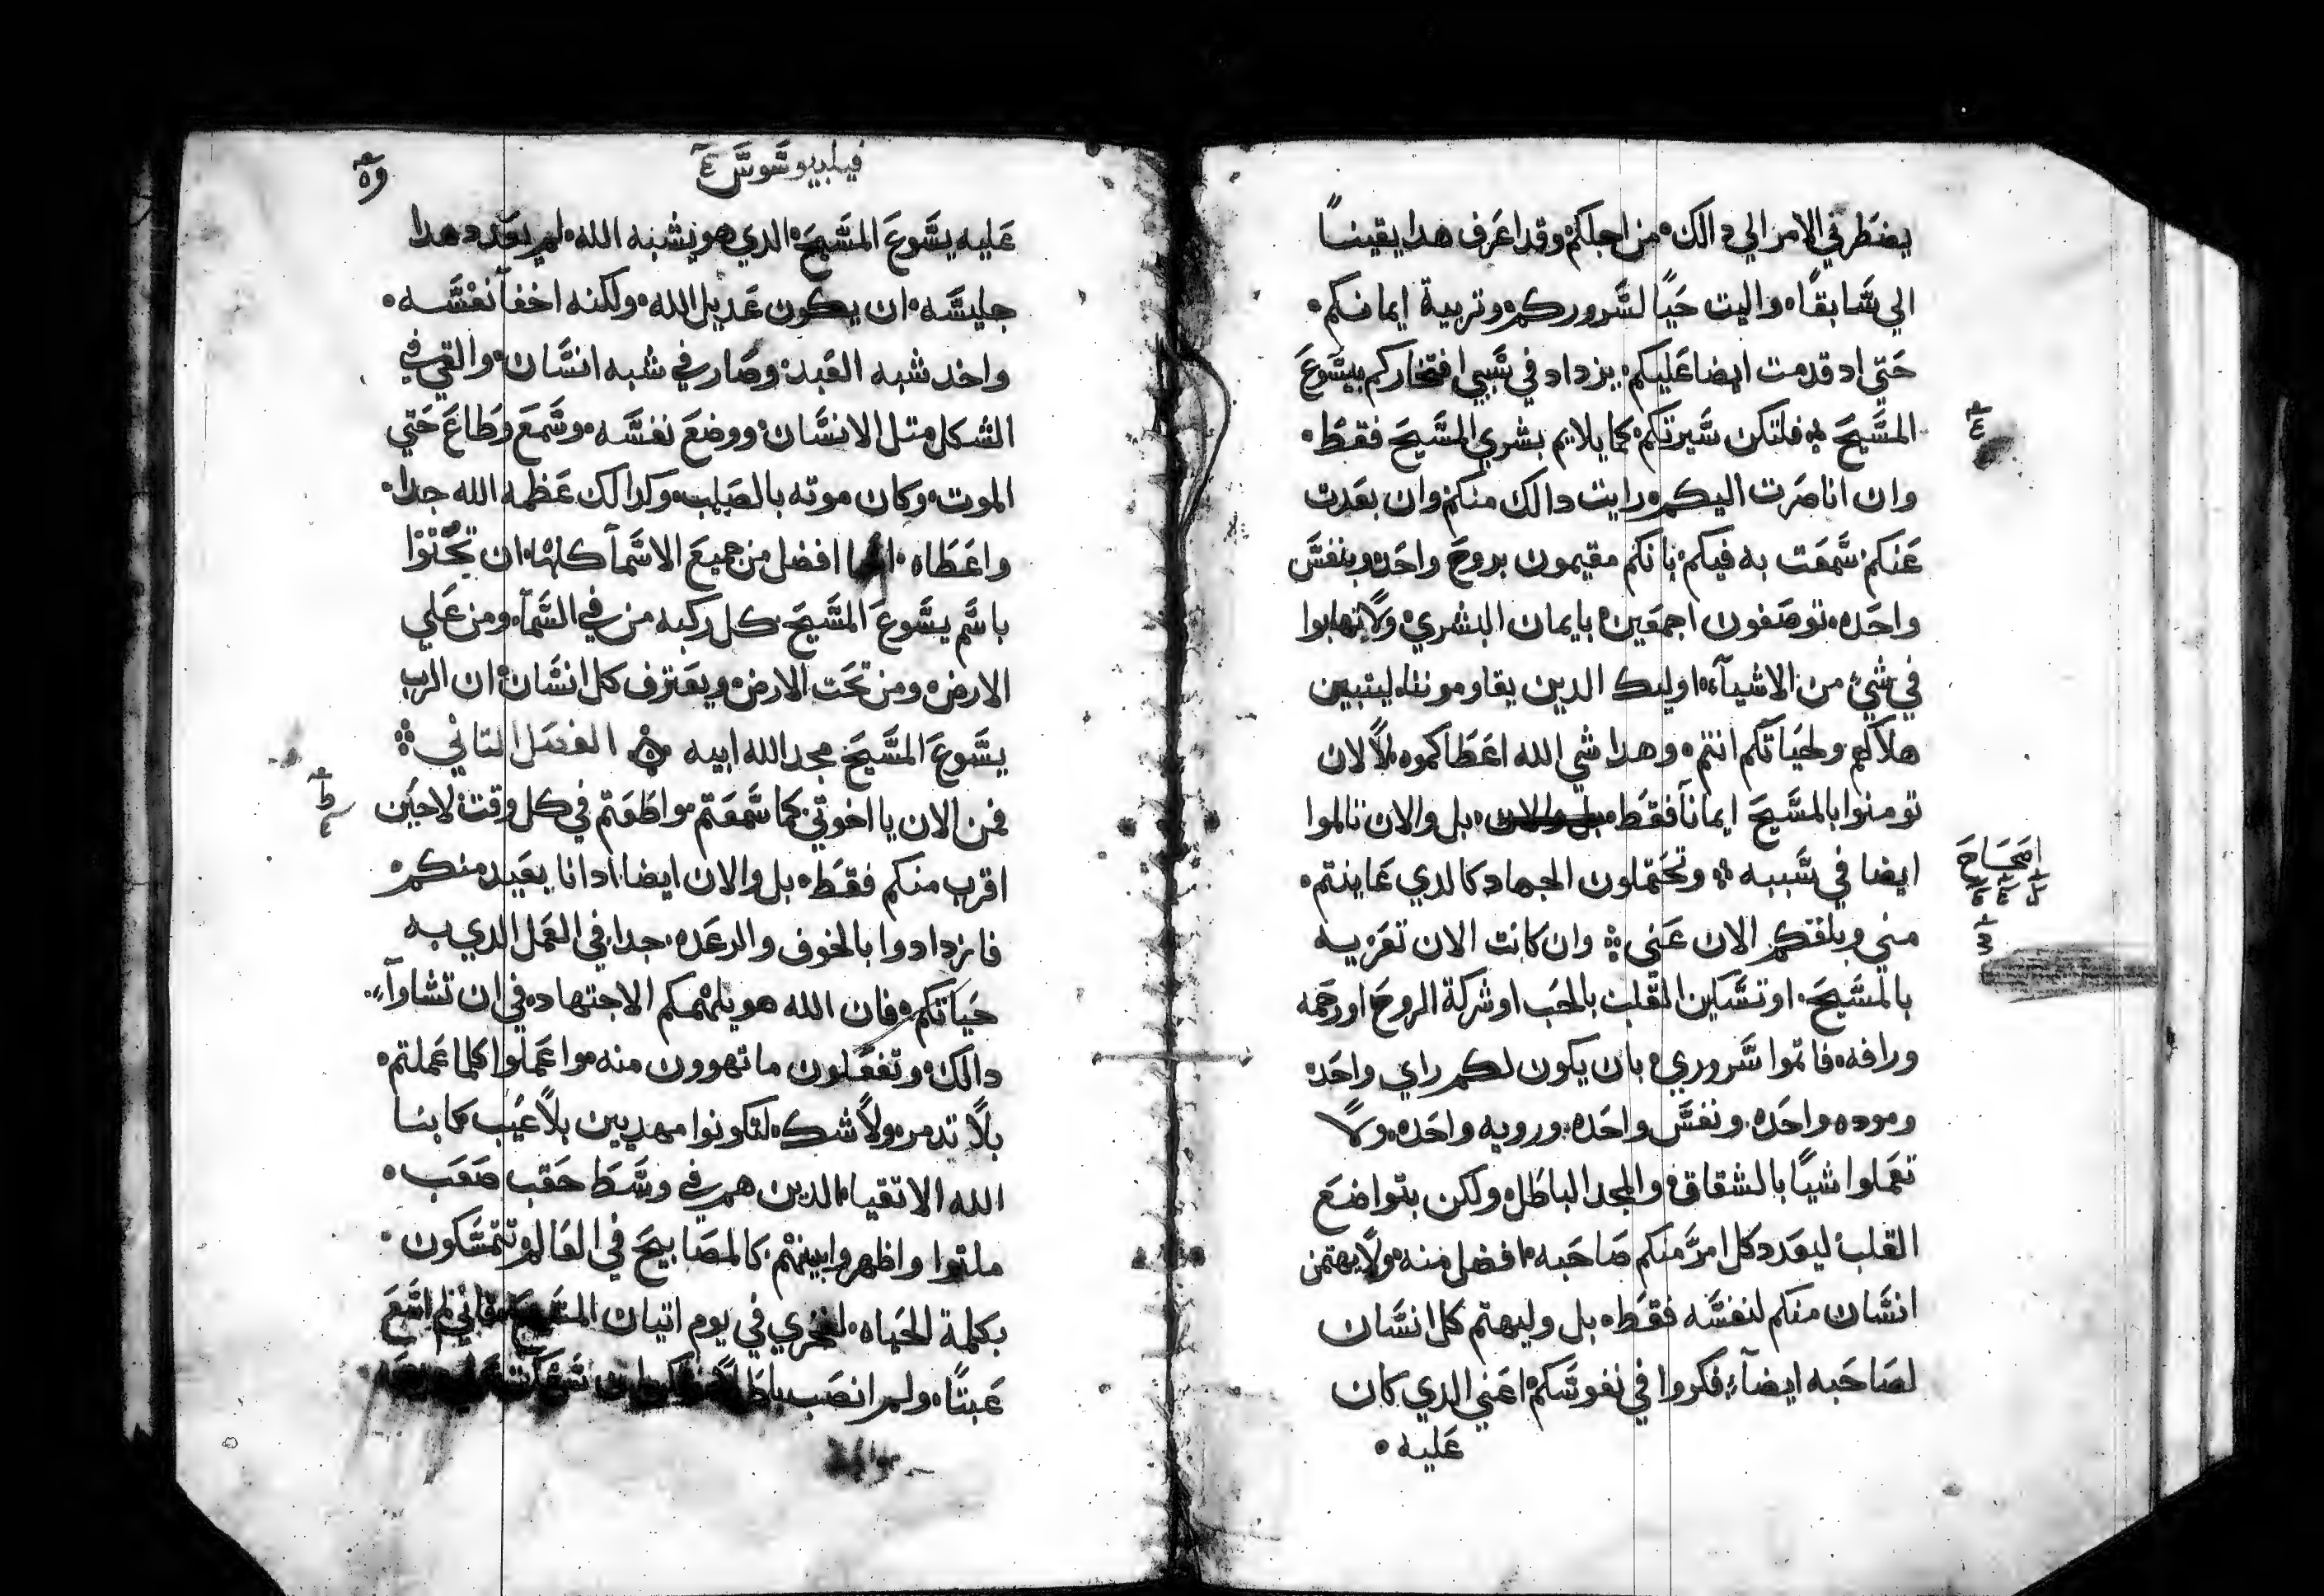 يضطرني الامر الي دالك من اجلكم وقد اعرف هدا يقينًا
الي سابقًا واليت حيًا لسروركم وتربية ايمانكم
حتي اد قدمت ايضا عليكم يزداد في سببي افتخاركم بيسوع
المسيح فلتكن سيرتكم كما يلايم بشري المسيح فقط
وان انا صرت اليكم رايت دالك منكم وان بعدت
عنكم سمعت به فيكم بانكم مقيمون بروح واحد وبنفس
واحده توصفون اجمعين بايمان البشري ولا تهابوا
في شي من الاشيآء اوليك الدين يقاوموننا ليتبين
هلاكهم ولحياتكم انتم وهدا شي الله اعطاكموه لا لان
تومنوا بالمسيح ايمانآ فقط بل والان بل والان تالموا
ايضا في سببه وتحتملون الجهاد كالدي عاينتم
مني وبلغكم الان عني وان كانت الان تعزيه
بالمسيح او تسكين القلب بالحب او شركة الروح او رحمه
ورافه فاتموا سروري بان يكون لكم راي واحد
وموده واحده ونفس واحده ورويه واحده ولا
تعملوا شيًا بالشقاق والمجد الباطل ولكن بتواضع
القلب ليعدد كل امر منكم صاحبه افضل منه ولا يهتمن
انسان منكم لنفسه فقط بل وليهتم كل انسان
لصاحبه ايضآ فكروا في نفوسكم اعني الدي كان
عليه
اصحاح
فيلبيوسوس
عليه يسوع المسيح الدي هو يشبه الله لم يعدد هدا
جليسه ان يكون عديل الله ولكنه اخفآ نفسه
واخد شبه العبد وصار في شبه انسان والقي في
الشكل متل الانسان ووضع نفسه وسمع وطاع حتي
الموت وكان موته بالصليب وكدالك عظمه الله جدا
واعطاه افضل من جميع الاسمآ كلها ان تجتوا
باسم يسوع المسيح كل ركبه من في السمآ ومن علي
الارض ومن تحت الارض ويعترف كل انسان ان الرب
يسوع المسيح مجد الله ابيه الفصل التاني
فمن الان يا اخوتي كما سمعتم مواطعتم في كل وقت لا حين
اقرب منكم فقط بل والان ايضا اد انا بعيد منكم
فازدادوا بالخوف والرعده جدا في العمل الدي به
حياتكم فان الله هو يلهمكم الاجتهاد في ان تشاوآ
دالك وتفعلون ما تهوون منه مواعملوا كلما عملتم
بلا تدمر ولا شك لتكونوا مهديين بلا عيب كما بنا
الله الاتقيا الدين هم في وسط حقب صعب
ملتوا واظهروا بينهم كالمصابيح في العالم وتتمسكون
بكلمة الحياه لفخري في يوم اتيان المسيح فاني لم اسع
عبتًا ولم انصب باطلًا